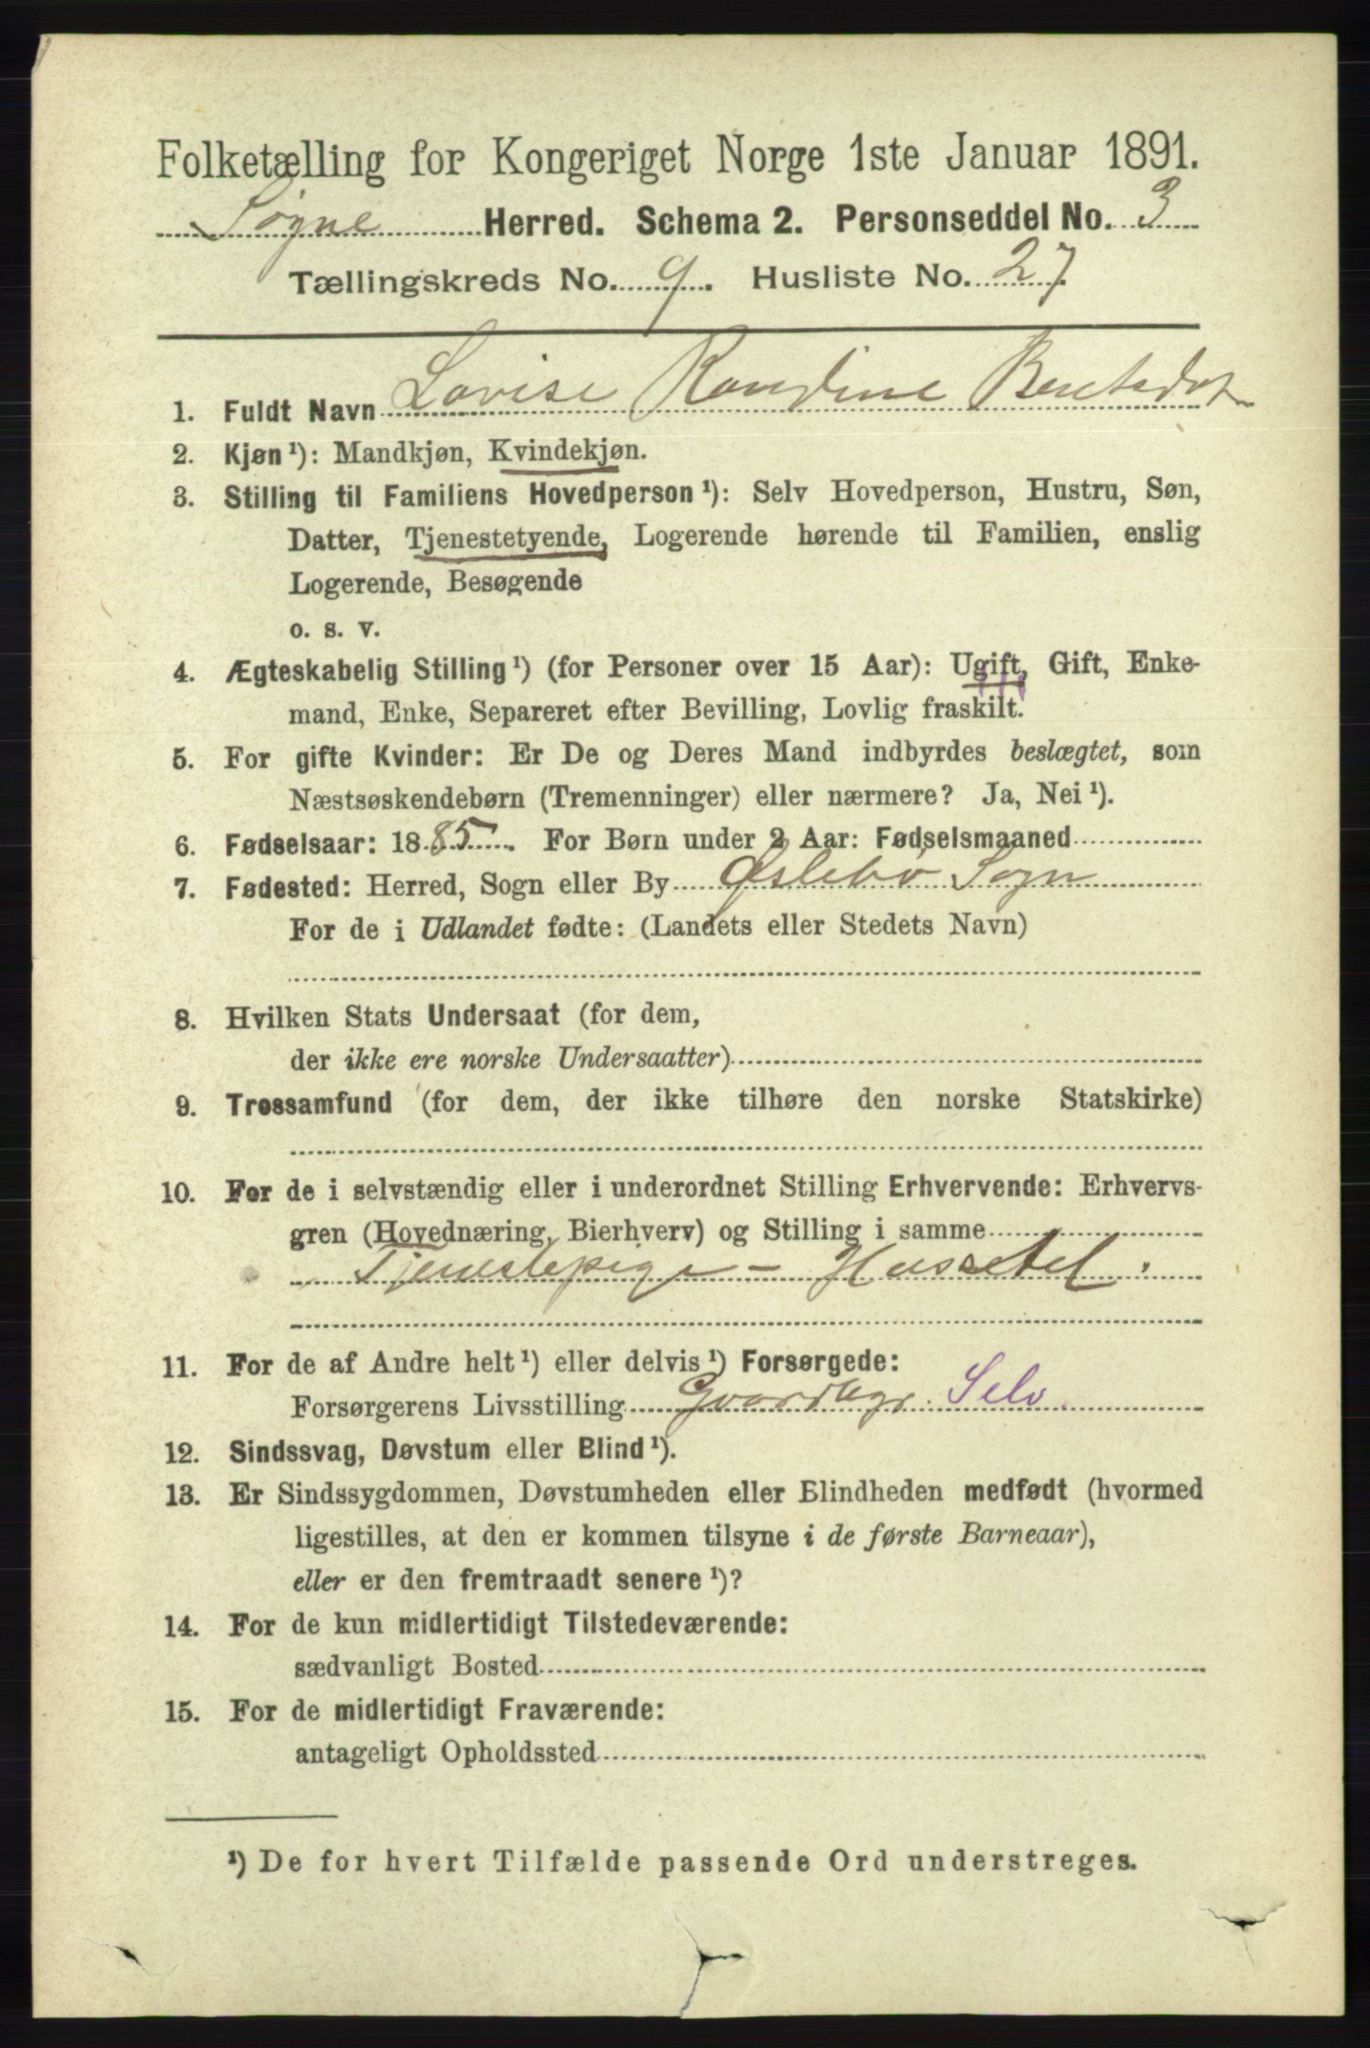 Folketælling for Kongeriget Norge 1ste Januar 1891.
Søgne Herred. Schema 2. Personseddel No. 3
Tællingskreds No. 9. Husliste No. 27.
1. Fuldt Navn Lovise Randine Bentsdat
2. Kjøn ¹): Mandkjøn, Kvindekjøn.
3. Stilling til Familiens Hovedperson ¹): Selv Hovedperson, Hustru, Søn,
Datter, Tjenestetyende, Logerende hørende til Familien, enslig
Logerende, Besøgende
o. s. v.
4. Ægteskabelig Stilling ¹) (for Personer over 15 Aar): Ugift, Gift, Enke-
mand, Enke, Separeret efter Bevilling, Lovlig fraskilt.
5. For gifte Kvinder: Er De og Deres Mand indbyrdes beslægtet, som
Næstsøskendebørn (Tremenninger) eller nærmere? Ja, Nei ¹).
6. Fødselsaar: 1885. For Børn under 2 Aar: Fødselsmaaned
7. Fødested: Herred, Sogn eller By Øslebø Sogn
For de i Udlandet fødte: (Landets eller Stedets Navn)
8. Hvilken Stats Undersaat (for dem,
der ikke ere norske Undersaatter)
9. Trossamfund (for dem, der ikke tilhøre den norske Statskirke)
10. For de i selvstændig eller i underordnet Stilling Erhvervende: Erhvervs-
gren (Hovednæring, Bierhverv) og Stilling i samme
Tjenestepige - Husstel.
11. For de af Andre helt ¹) eller delvis ¹) Forsørgede:
Forsørgerens Livsstilling Gaardbgr. Selv.
12. Sindssvag, Døvstum eller Blind ¹).
13. Er Sindssygdommen, Døvstumheden eller Blindheden medfødt (hvormed
ligestilles, at den er kommen tilsyne i de første Barneaar),
eller er den fremtraadt senere ¹)?
14. For de kun midlertidigt Tilstedeværende:
sædvanligt Bosted
15. For de midlertidigt Fraværende:
antageligt Opholdssted
¹) De for hvert Tilfælde passende Ord understreges.